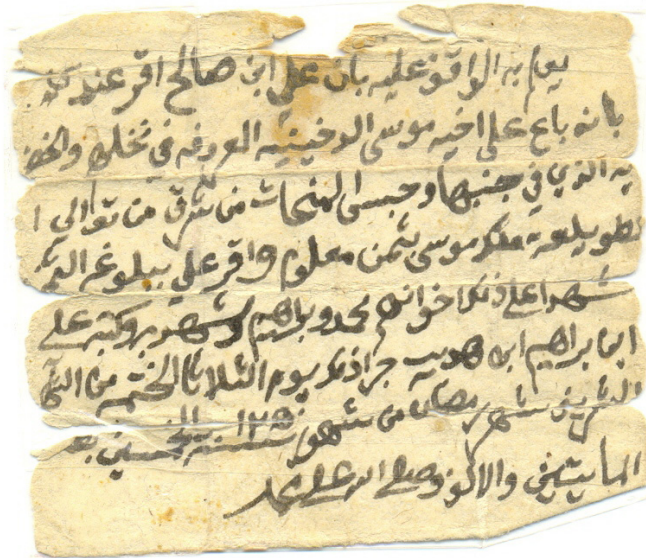 يعلم به الواقف عليه بان علي ابن صالح اقر عندي
بانه باع على اخيه موسى الدخينيه المعروفه في نخلهم
يه الذي في جنبها وحبس من شرق من توالي
ملكه موسى بثمن معلوم واقر علي ببلوغه الثمن
شهدا على ذلك اخوانهم محمد وبراهيم وشهد به وكتبه علي
ابن براهيم ابن هديب جرا ذلك يوم الثلاثا
الشريف شهر رمضان من شهور سنة ١٢٥٠ الخمسين بعد
المايتين والالف وصلى الله على محمد